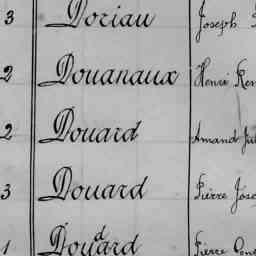 3 Doriau Joseph
2 Douanaux Henri
2 Douard Amand
3 Douard Pierre
1 Douard Pierre